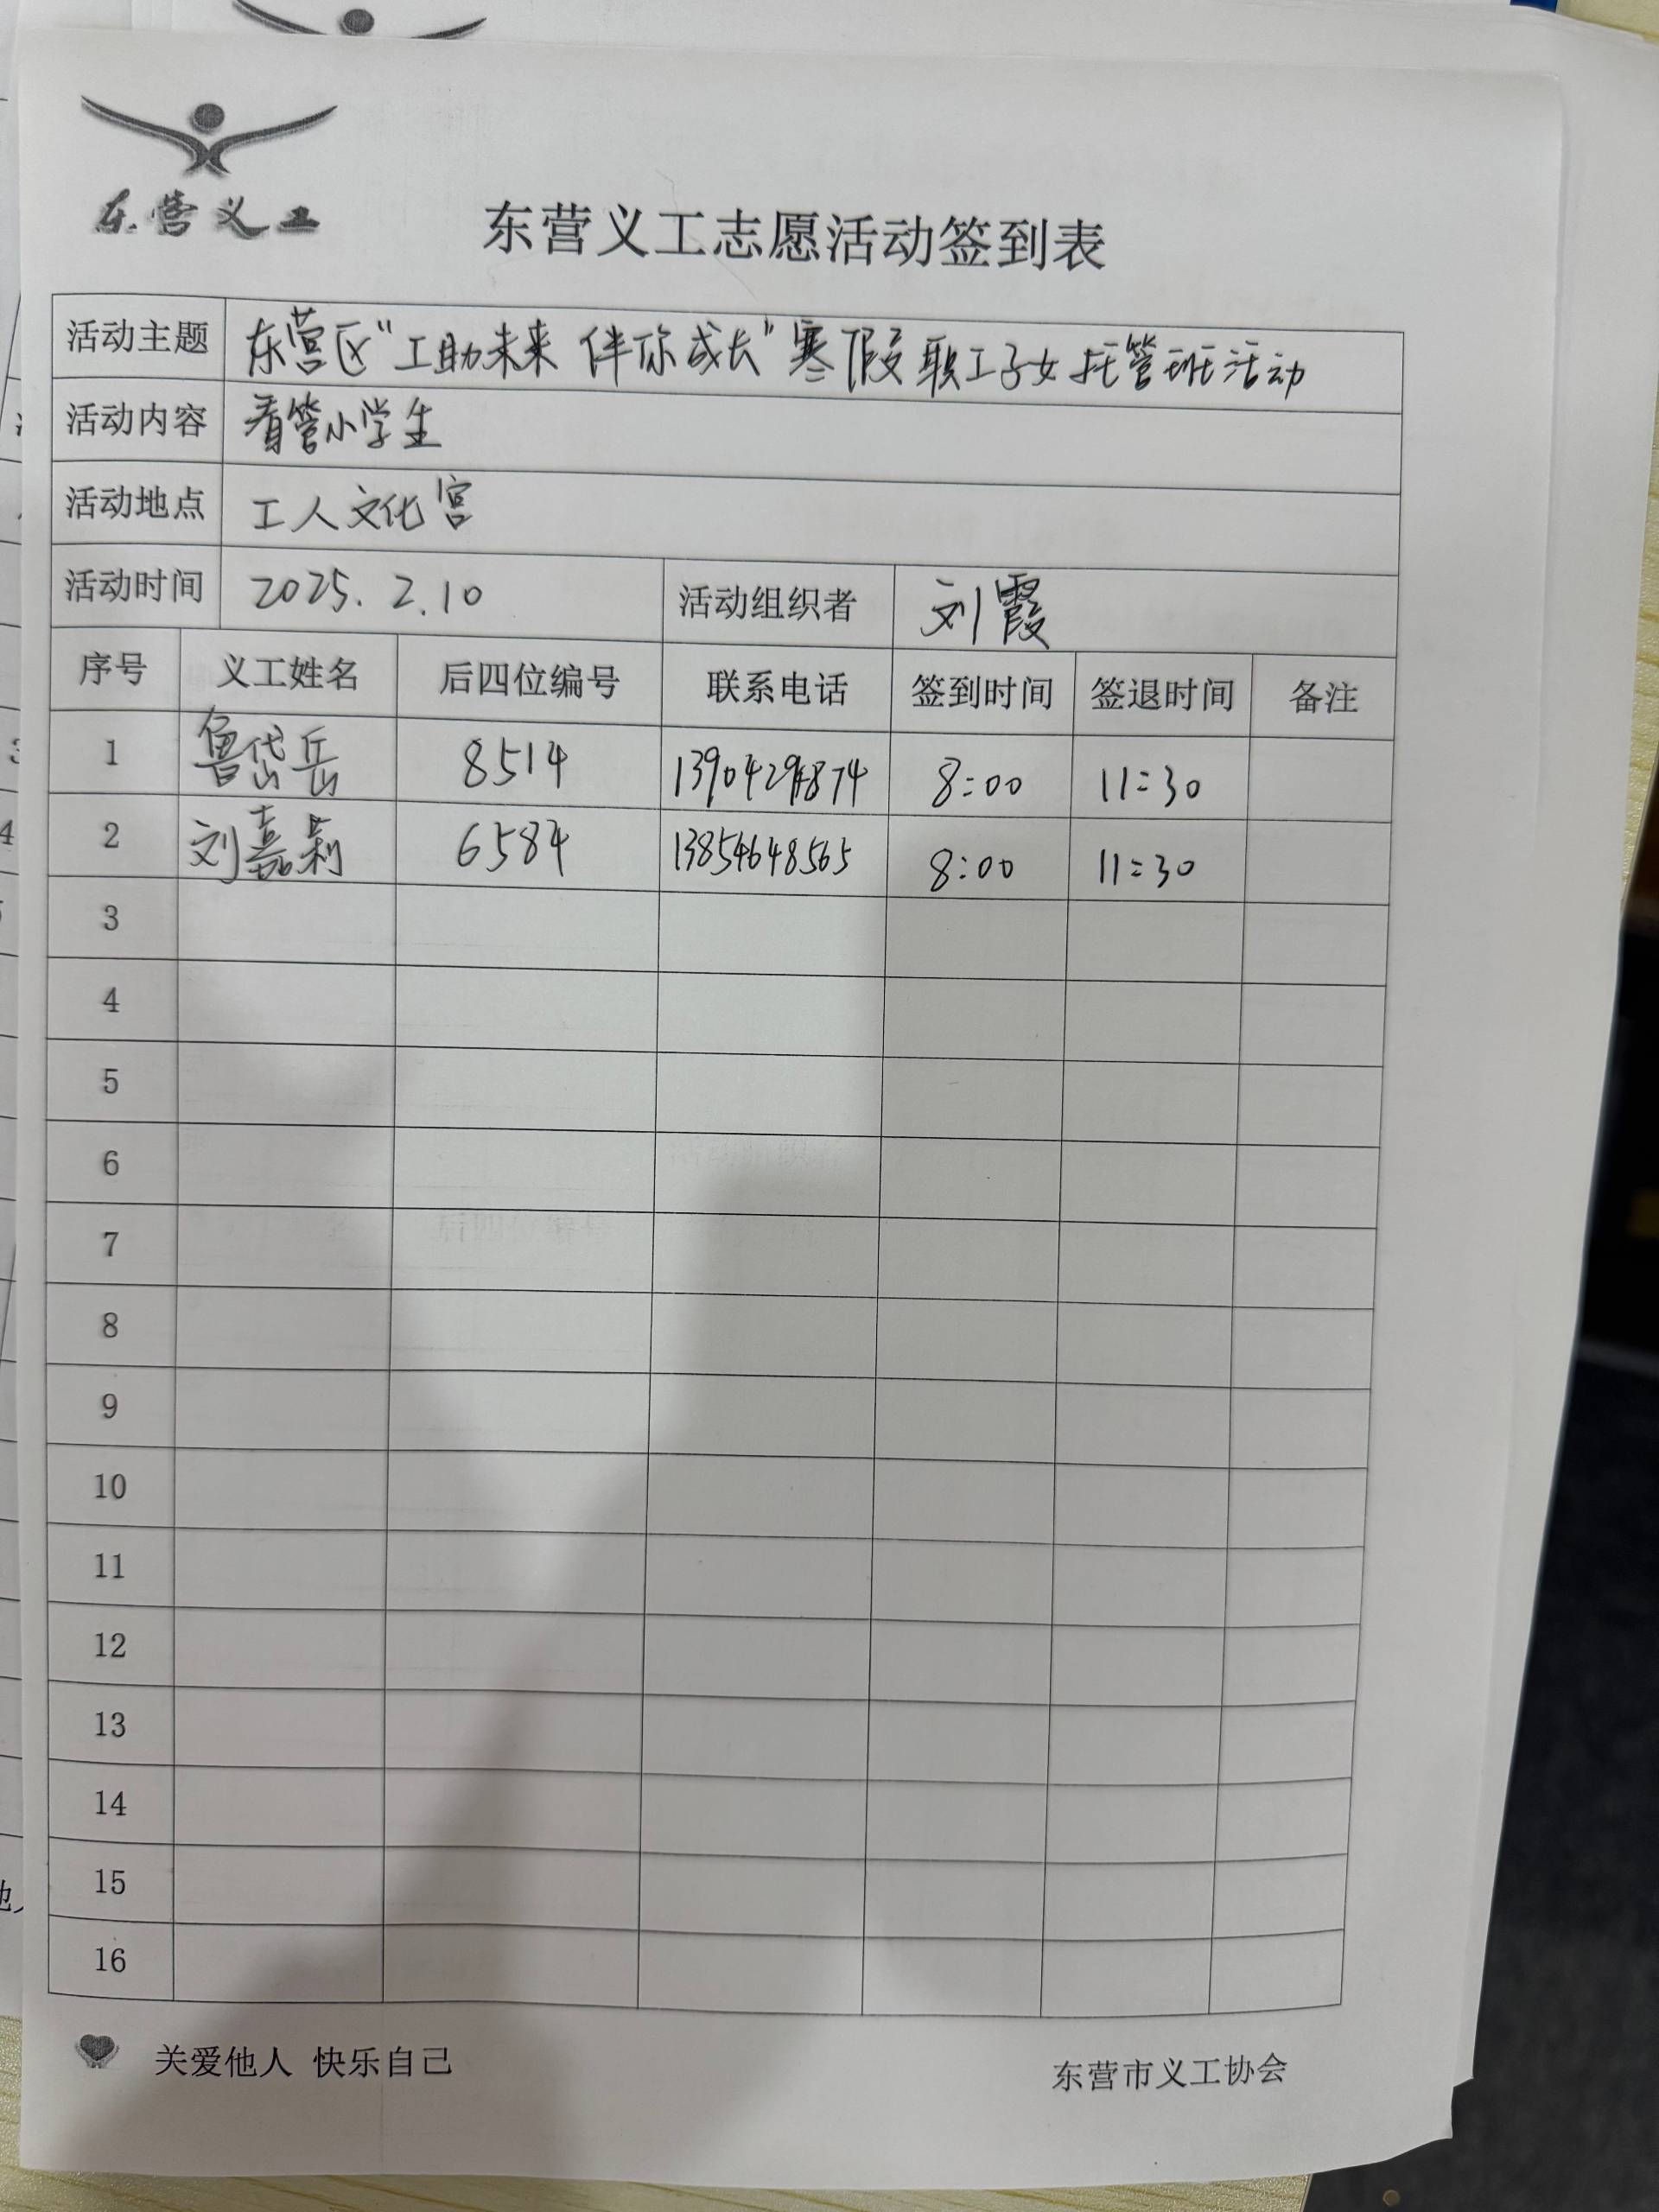 东营义工
东营义工志愿活动签到表
活动主题 东营区“工助未来 伴你成长”寒假职工子女托管班活动
活动内容 看管小学生
活动地点 工人文化宫
活动时间 2025.2.10 活动组织者 刘霞
序号 义工姓名 后四位编号 联系电话 签到时间 签退时间 备注
1 鲁岱岳 8514 8:00 11:30
2 刘嘉莉 6584 13854648565 8:00 11:30
3
4
5
6
7
8
9
10
11
12
13
14
15
16
关爱他人 快乐自己 东营市义工协会